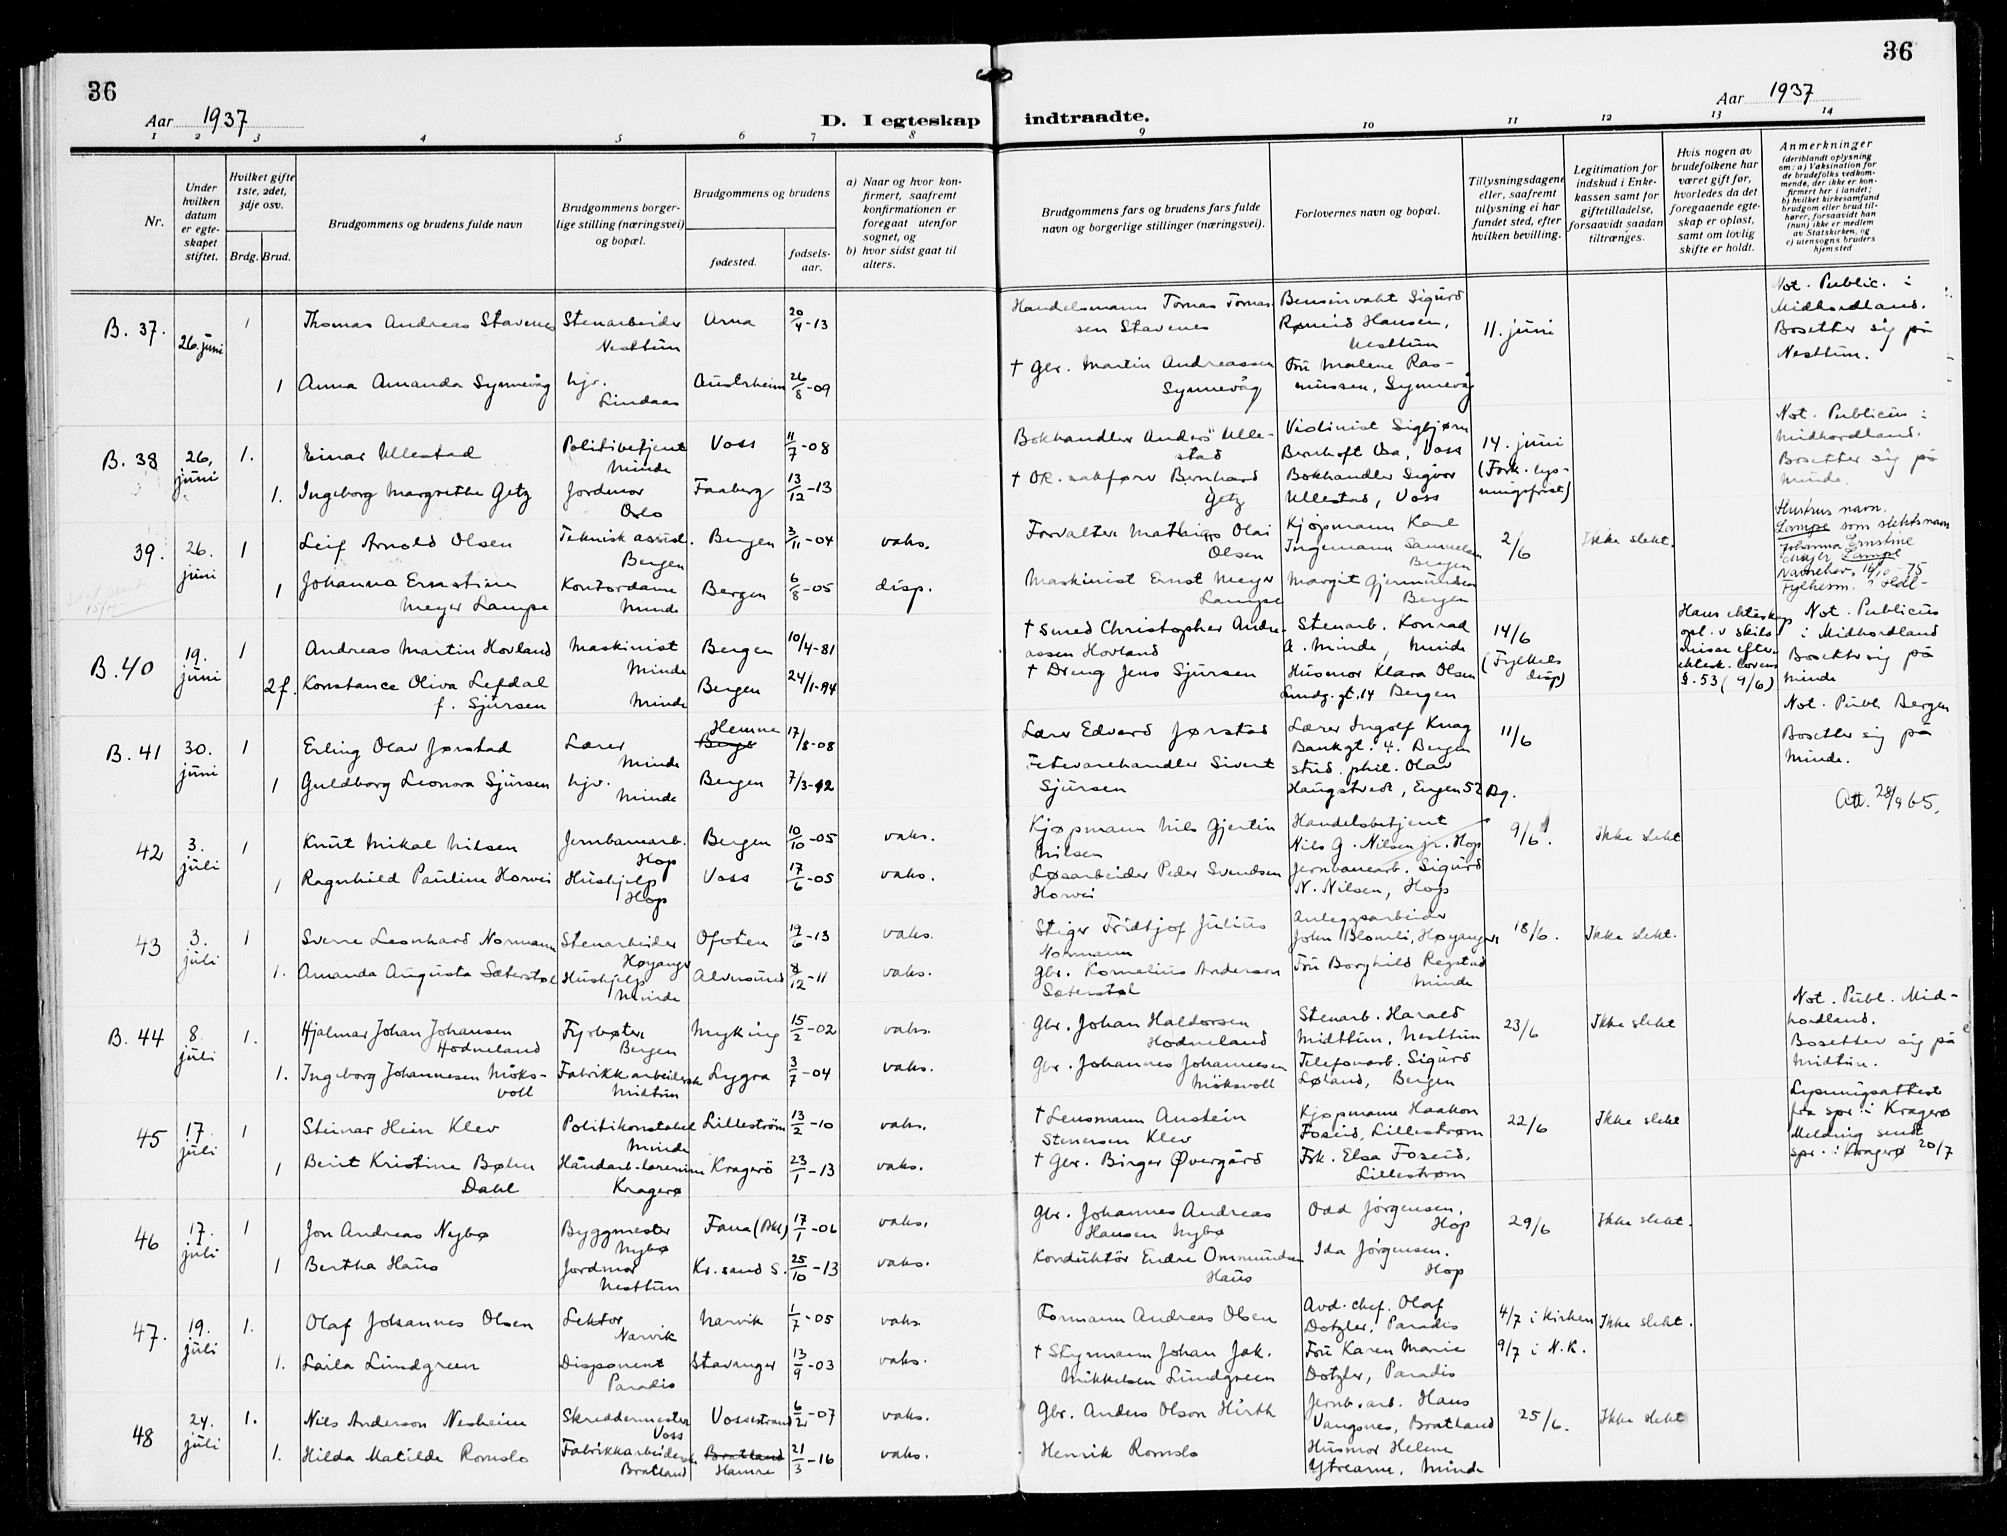 36
36
Aar 1937
D. I egteskap indtraadte.
Aar 1937
1 2 3 4 5 6 7 8 9 10 11 12 13 14
Nr.
Under hvilken datum er egteskapet stiftet.
Hvilket gifte 1ste, 2det, 3dje osv.
Brdg. Brud.
Brudgommens og brudens fulde navn
Brudgommens borgerlige stilling (næringsvei) og bopæl.
Brudgommens og brudens
fødested.
fødselsaar.
a) Naar og hvor konfirmert, saafremt konfirmationen er foregaat utenfor sognet, og
b) hvor sidst gaat til alters.
Brudgommens fars og brudens fars fulde navn og borgerlige stillinger (næringsvei).
Forlovernes navn og bopæl.
Tillysningsdagene eller, saafremt tillysning ei har fundet sted, efter hvilken bevilling.
Legitimation for indskud i Enkekassen samt for giftetilladelse, forsaavidt saadan tiltrænges.
Hvis nogen av brudefolkene har været gift før, hvorledes da det foregaaende egteskap er opløst, samt om lovlig skifte er holdt.
Anmerkninger
(deriblandt oplysning om: a) Vaksination for de brudefolks vedkommende, der ikke er konfirmert her i landet; b) hvilket kirkesamfund brudgom eller brud tilhører, forsaavidt han (hun) ikke er medlem av Statskirken, og c) utensogns bruders hjemsted
B. 37. 26. juni 1 Thomas Andreas Stavenes Stenarbeider Nesttun Arna 20/4-13 Handelsmann Tomas Tomassen Stavenes Bensinvakt Sigurd Hansen, Nesttun 11. juni Not. Public. i Midhordland. Bosetter sig på Nesttun.
1 Anna Amanda Synnevåg hjv. Lindaas Austrheim 26/8-09 † Gbr. Martin Andreassen Synnevåg Fru Malene Rasmussen, Synnevåg
B. 38 26. juni 1. Einar Ullestad Politibetjent Minde Voss 11/7-08 Bokhandler Anders Ullestad Violinist Sigbjørn Bernhoft Osa, Voss 14. juni (Fork. lysningsfrist) Not. Publicus i Midhordland. Bosetter sig på Minde.
1. Ingeborg Margrethe Getz Jordmor Oslo Faaberg 13/12-13 † OR. sakfører Bernhard Getz Bokhandler Sigvor Ullestad, Voss
39. 26. juni 1 Leif Arnold Olsen Teknisk assist. Bergen Bergen 3/11-04 vaks. Forvalter Mathias Olai Olsen Kjøpmann Karl Ingemann Samuelsen Bergen 2/6 Ikke slekt. Hustrus navn. Lampe som slektsnavn Johanna Ernstine Meyer Lampe
1 Johanna Ernstine Meyer Lampe Kontordame Minde Bergen 6/8-05 disp. Maskinist Ernst Meyer Lampe Margit Gjermundsen Bergen
B. 40 19. juni 1 Andreas Martin Hovland Maskinist Minde Bergen 10/4-81 † Smed Christopher Andreassen Hovland Stenarb. Konrad A. Minde, Minde 14/6 (Fylkets disp) Hans ekteskap opl. v skilsmisse efter ektesk. lovens §. 53 (4/6) Not. Publicus i Midhordland Bosetter sig på Minde
2 f. Konstance Oliva Lefdal f. Sjursen Minde Bergen 24/1-94 † Dreng Jens Sjursen Husmor Klara Olsen Lundg. gt. 14 Bergen
B. 41 30. juni 1 Erling Olav Jørstad Lærer Minde Hemne 17/8-08 Lærer Edvard Jørstad Lærer Ingolf Knag Bankgt. 4. Bergen 11/6 Not. Publ. Bergen Bosetter sig på Minde.
1 Guldborg Leonora Sjursen hjv. Minde Bergen 7/3-12 Fetevarehandler Sivert Sjursen stud. phil. Olav Haugstvedt, Engen 52 Bg. Att. 28/9 65.
42 3. juli 1 Knut Mikal Nilsen Jernbanearb. Hop Bergen 10/10-05 vaks. Kjøpmann Nils Gjertin Nilsen Handelsbetjent Nils G. Nilsen jr. Hop 9/6. Ikke slekt
1 Ragnhild Pauline Horvei Hushjelp Hop Voss 17/6-05 vaks. Løsarbeider Peder Svendsen Horvei Jernbanearb. Sigurd N. Nilsen, Hop
43 3. juli 1 Sverre Leonhard Normann Stenarbeider Høyanger Ofoten 19/6-13 vaks. Stiger Fridtjof Julius Normann Anleggsarbeider John Blomli, Høyanger 18/6. Ikke slekt.
1. Amanda Augusta Sæterstøl Hushjelp Minde Alversund 8/12-11 vaks. Gbr. Kornelius Anderson Sæterstøl Fru Borghild Regstad Minde
B. 44 8. juli 1. Hjalmar Johan Johansen Hodneland Fyrbøter Bergen Myking 15/2-02 vaks. Gbr. Johan Haldorsen Hodneland Stenarb. Harald Midttun, Nesttun 23/6 Ikke slekt Not. Publ. Midhordland. Bosetter sig på Midtun.
1. Ingeborg Johannesen Möksvoll Fabrikkarbeiderske Midtun Lygra 3/7-04 vaks. Gbr. Johannes Johannesen Möksvoll Telefonarb. Sigurd Løland, Bergen
45 17. juli 1 Steinar Hein Klev Politikonstabel Minde Lilleström 13/2-10 vaks. † Lensmann Anstein Stenersen Klev Kjøpmann Haakon Foseid, Lillestrøm 22/6 Ikke slekt Lysningsattest fra spr. i Kragerø Melding sendt spr. i Kragerø 20/7
1 Berit Kristine Bøhn Dahl Håndarb. lærerinne Kragerø Kragerö 23/1-13 vaks. † Gbr. Birger Øvergård Frk. Elsa Foseid, Lillestrøm
46 17. juli 1 Jon Andreas Nybø Byggmester Nybø Fana (Bkl) 17/1-06 vaks. Gbr. Johannes Andreas Hansen Nybø Odd Jørgensen, Hop 29/6 Ikke slekt.
1 Bertha Haus Jordmor Nesttun Kr. sand S. 25/10-13 vaks. Konduktör Endre Ommundsen Haus Ida Jørgensen. Hop
47. 19. juli 1. Olaf Johannes Olsen Lektor Narvik Narvik 1/7-05 vaks. Formann Andreas Olsen Avd. chef. Olaf Dotzler, Paradis 4/7 i kirken Ikke slekt.
1. Laila Lundgreen Disponent Paradis Stavanger 13/9-03 vaks. † Styrmann Johan Jak. Mikkelsen Lundgreen Fru Karen Marie Dotzler, Paradis 9/7 i N.K.
48 24. juli 1. Nils Anderson Nesheim Skreddermester Voss Vossestrand 6/2-07 vaks. Gbr. Anders Olson Hirth Jernb. arb. Hans Vangsnes, Bratland 25/6. Ikke slekt
1. Hilda Matilde Romslo Fabrikkarbeiderske Bratland Bratland Hamre 21/3-16 vaks. Henrik Romslo Husmor Helene Ytrearne, Minde